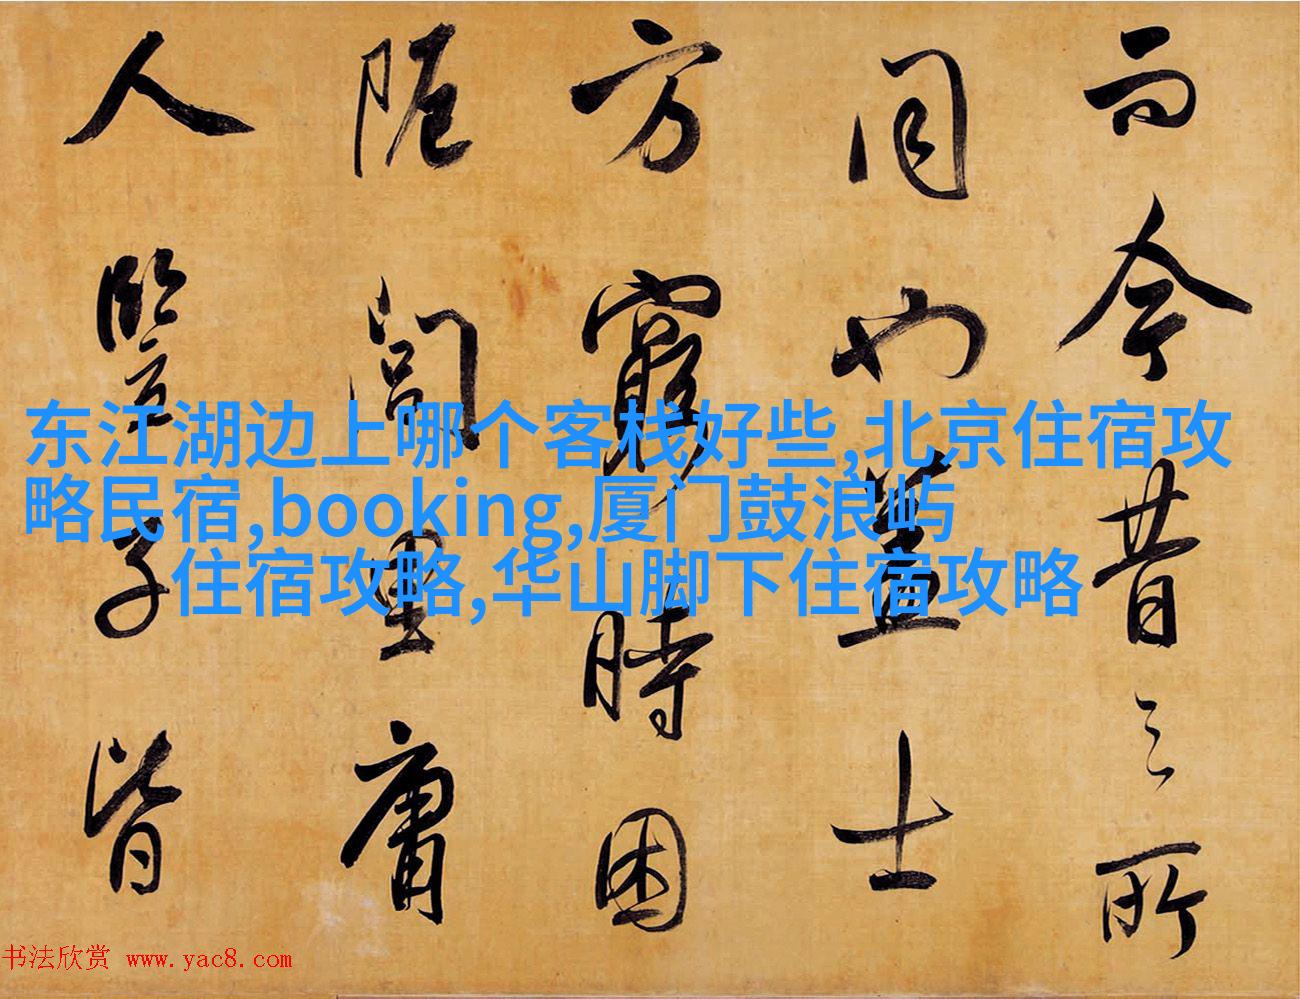 而今昔之所
同也蓋士
方窮時困
阨閭里庸
人豎子皆
东江湖边上哪个客栈好些,北京住宿攻
略民宿,booking,厦门鼓浪屿
住宿攻略,华山脚下住宿攻略
书法欣赏 www.yac8.com